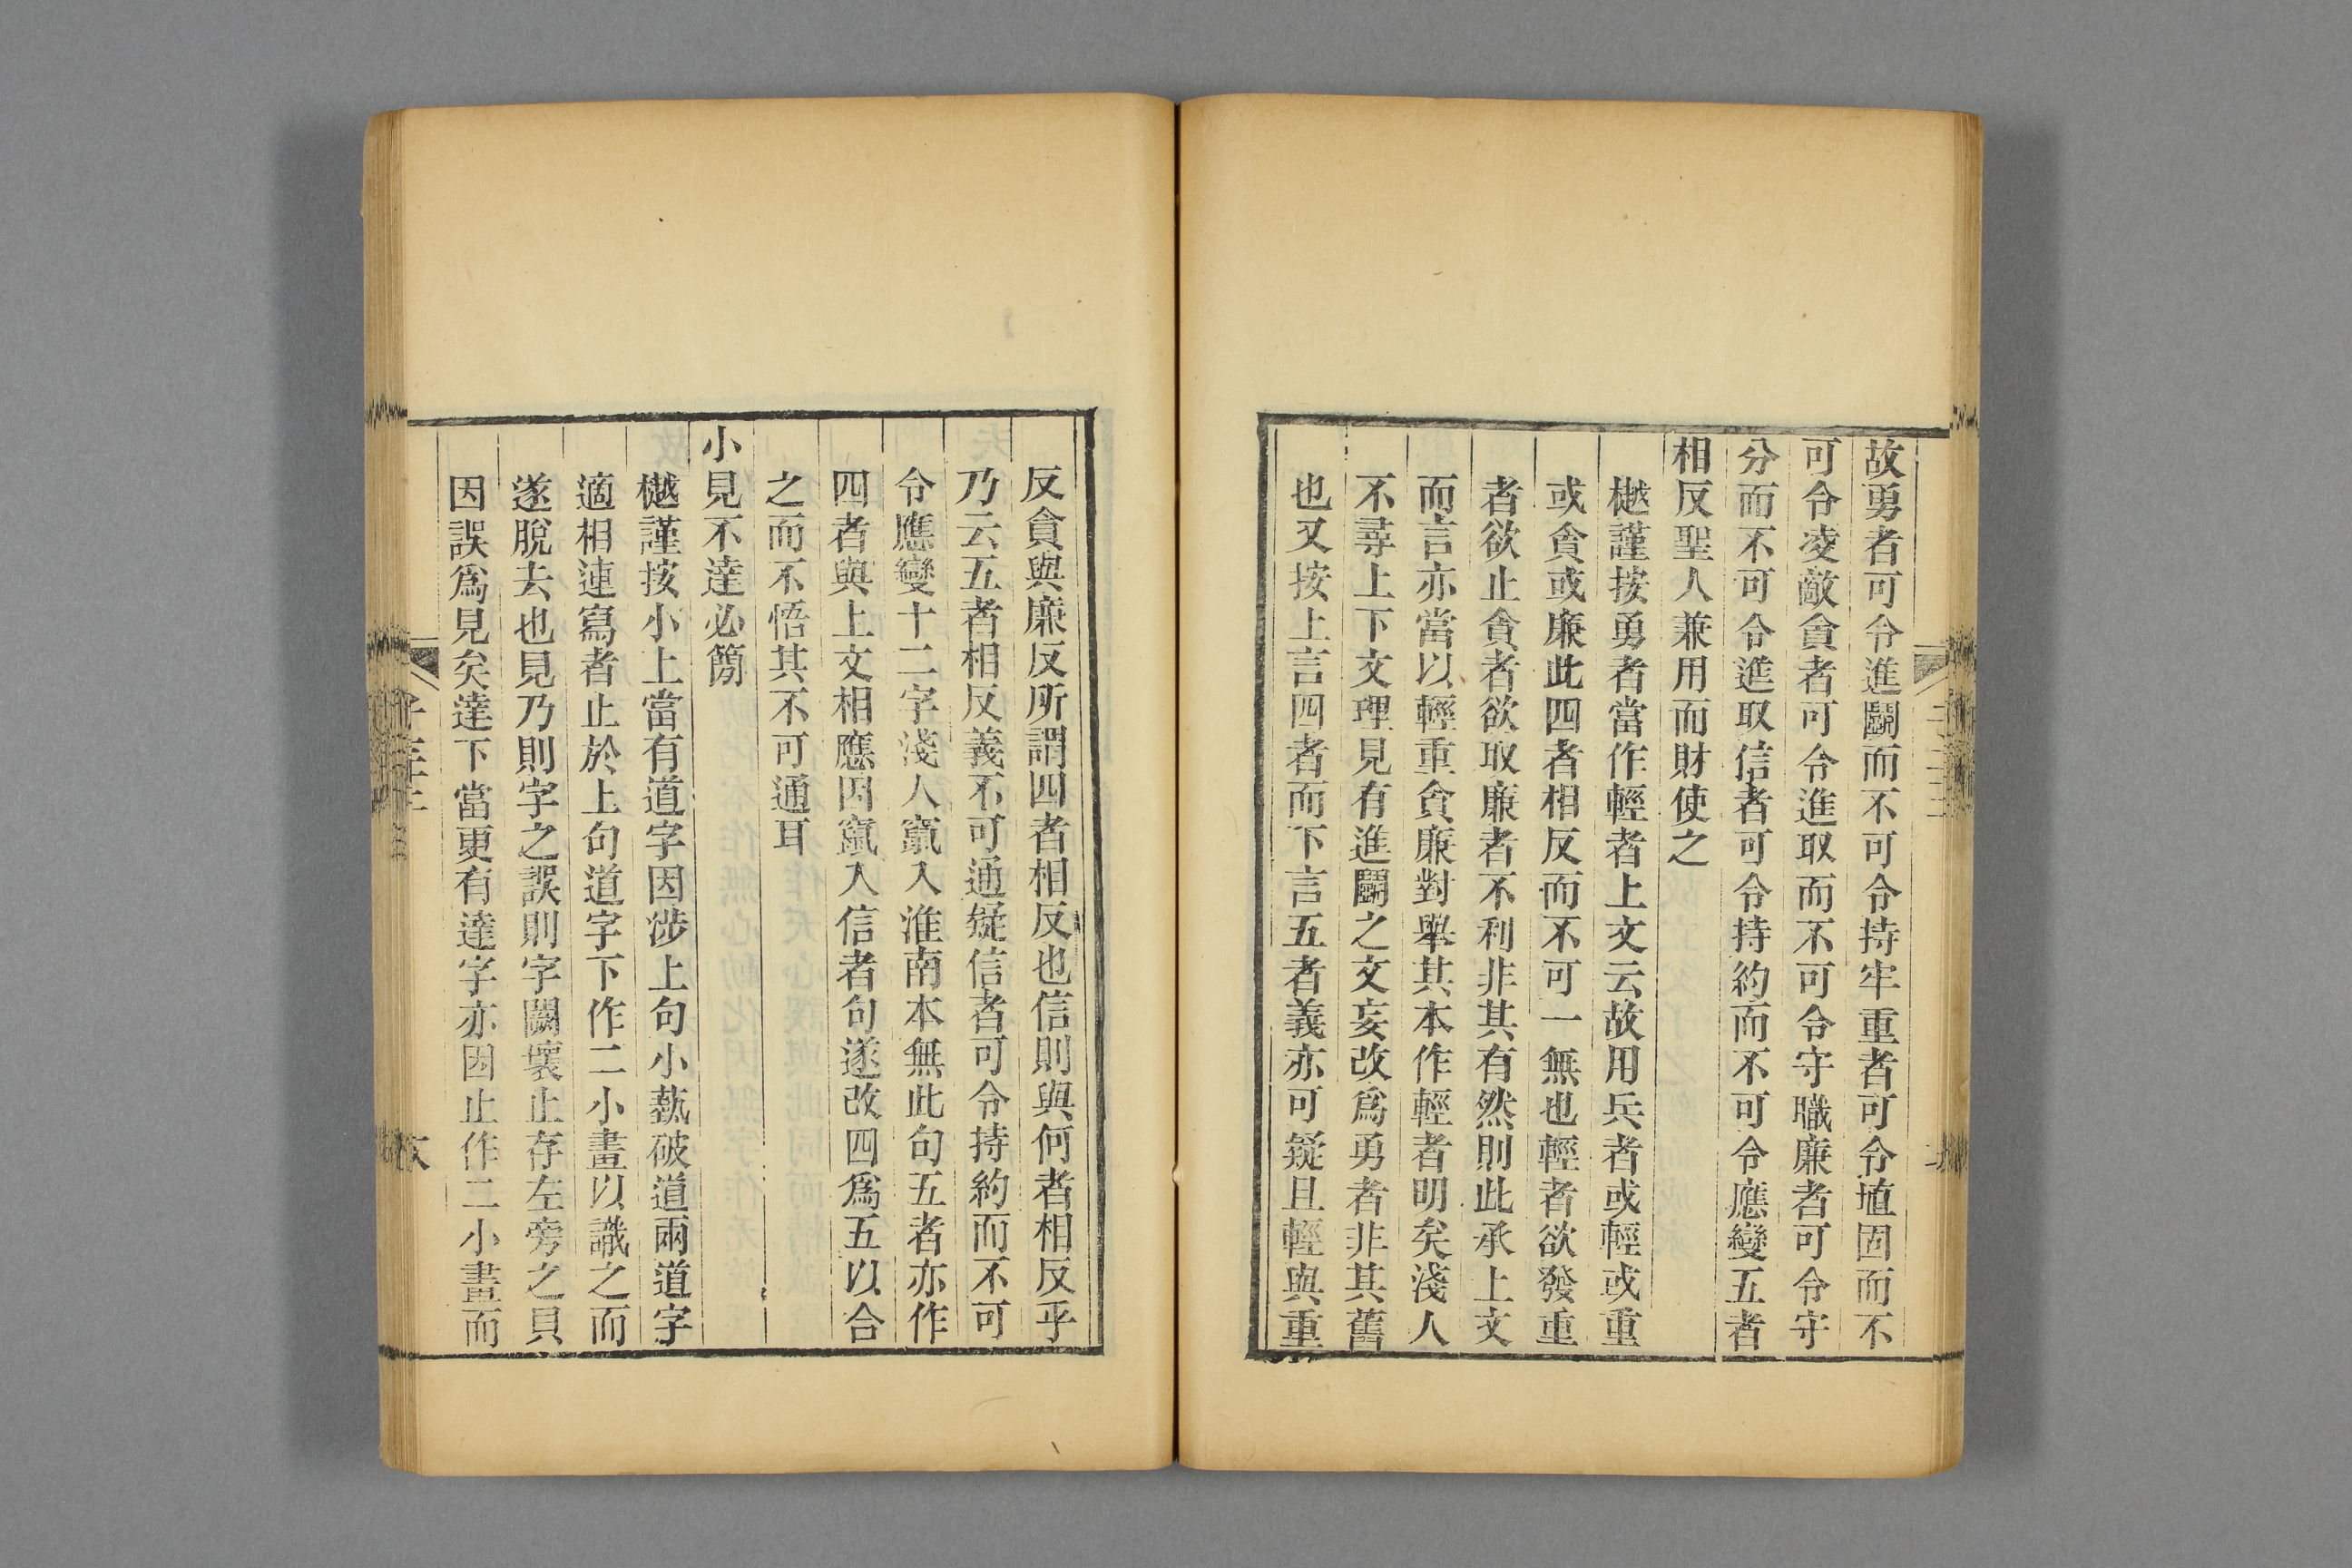 故勇者可令進鬭而不可令持牢重者可令埴固而不
可令凌敵貪者可令進取而不可令守職廉者可令守
分而不可令進取信者可令持約而不可令應變五者
相反聖人兼用而財使之
樾謹按勇者當作輕者上文云故用兵者或輕或重
或貪或廉此四者相反而不可一無也輕者欲發重
者欲止貪者欲取廉者不利非其有然則此承上文
而言亦當以輕重貪廉對舉其本作輕者明矣淺人
不尋上下文理見有進鬭之文妄改爲勇者非其舊
也又按上言四者而下言五者義亦可疑且輕與重
反貪與廉反所謂四者相反也信則與何者相反乎
乃云五者相反義不可通疑信者可令持約而不可
令應變十二字淺人竄入淮南本無此句五者亦作
四者與上文相應因竄入信者句遂改四爲五以合
之而不悟其不可通耳
小見不達必簡
樾謹按小上當有道字因涉上句小蓺破道兩道字
適相連寫者止於上句道字下作二小畫以識之而
遂脫去也見乃則字之誤則字闕壞止存左旁之貝
因誤爲見矣達下當更有達字亦因止作二小畫而